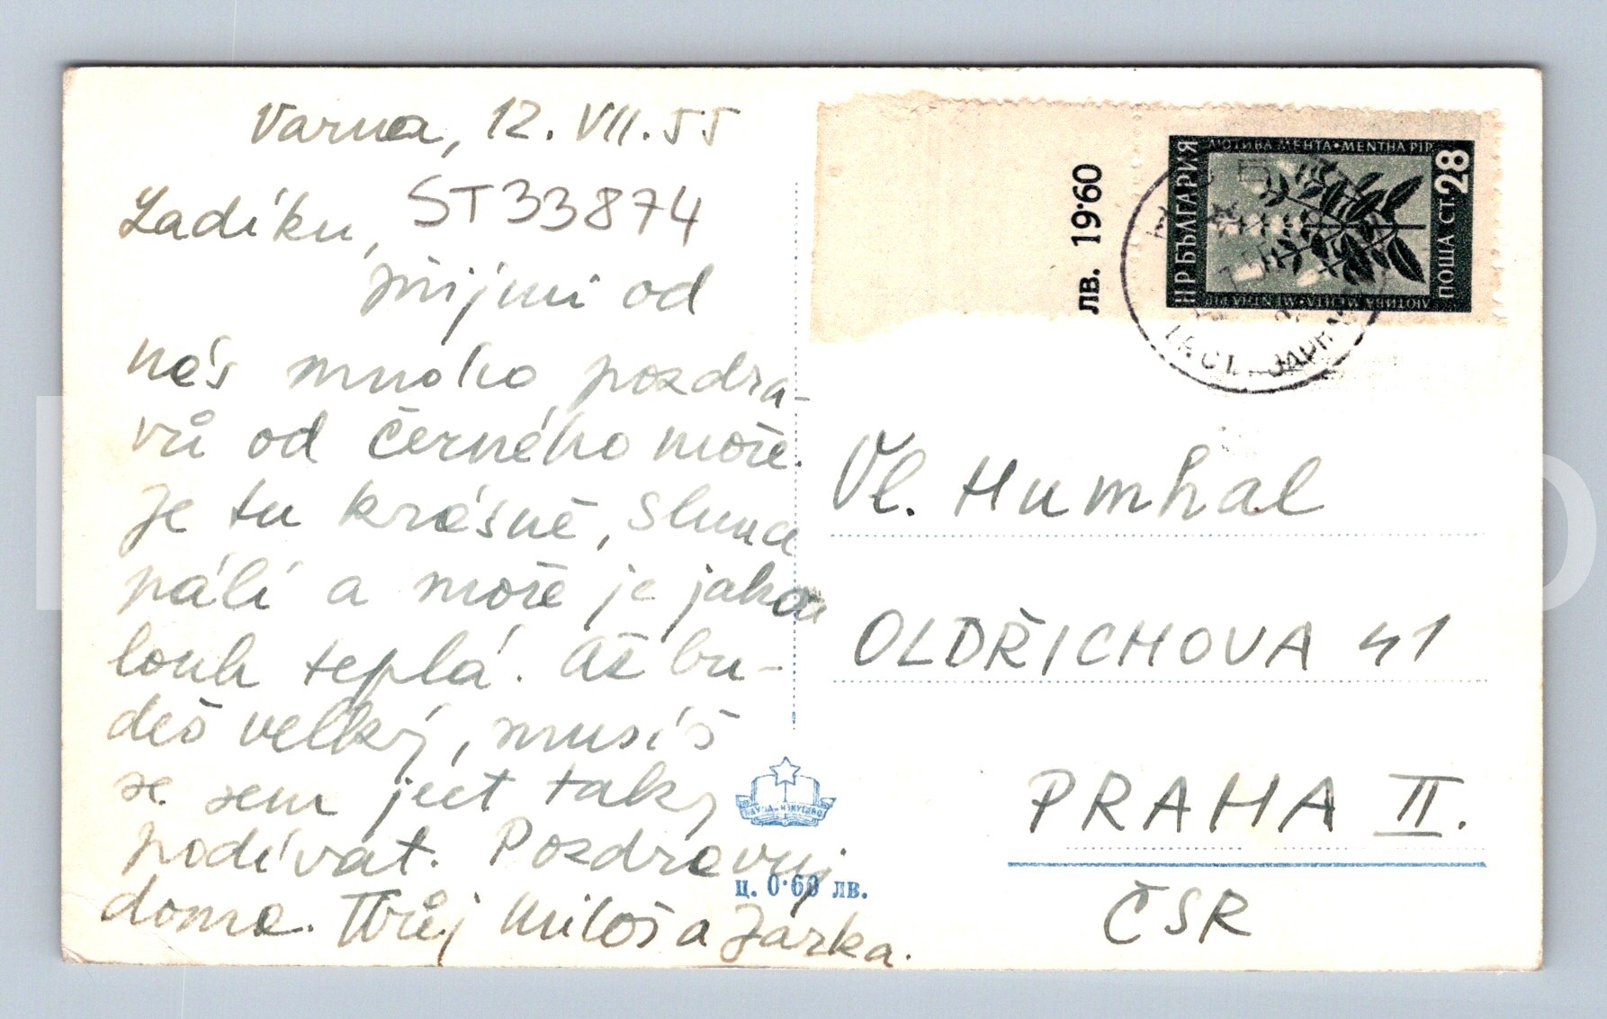 Varna, 12. VII. 55
Ladíku, ST33874
přijmi od
nás mnoho pozdra-
vů od černého moře.
Je tu krásně, slunce
pálí a moře je jako
louh teplá. Až bu-
deš velký, musíš
se sem ject taky
podívat. Pozdravuj
doma. Tvůj Miloš a Jarka.
лв. 19·60
НР БЪЛГАРИЯ
ЛЮТИВА МЕНТА • MENTHA PIP.
ПОЩА СТ. 28
ЛЮТИВА МЕНТА • MENTHA PIP.
Vl. Humhal
OLDŘICHOVA 41
PRAHA II.
ČSR
ц. 0·60 лв.